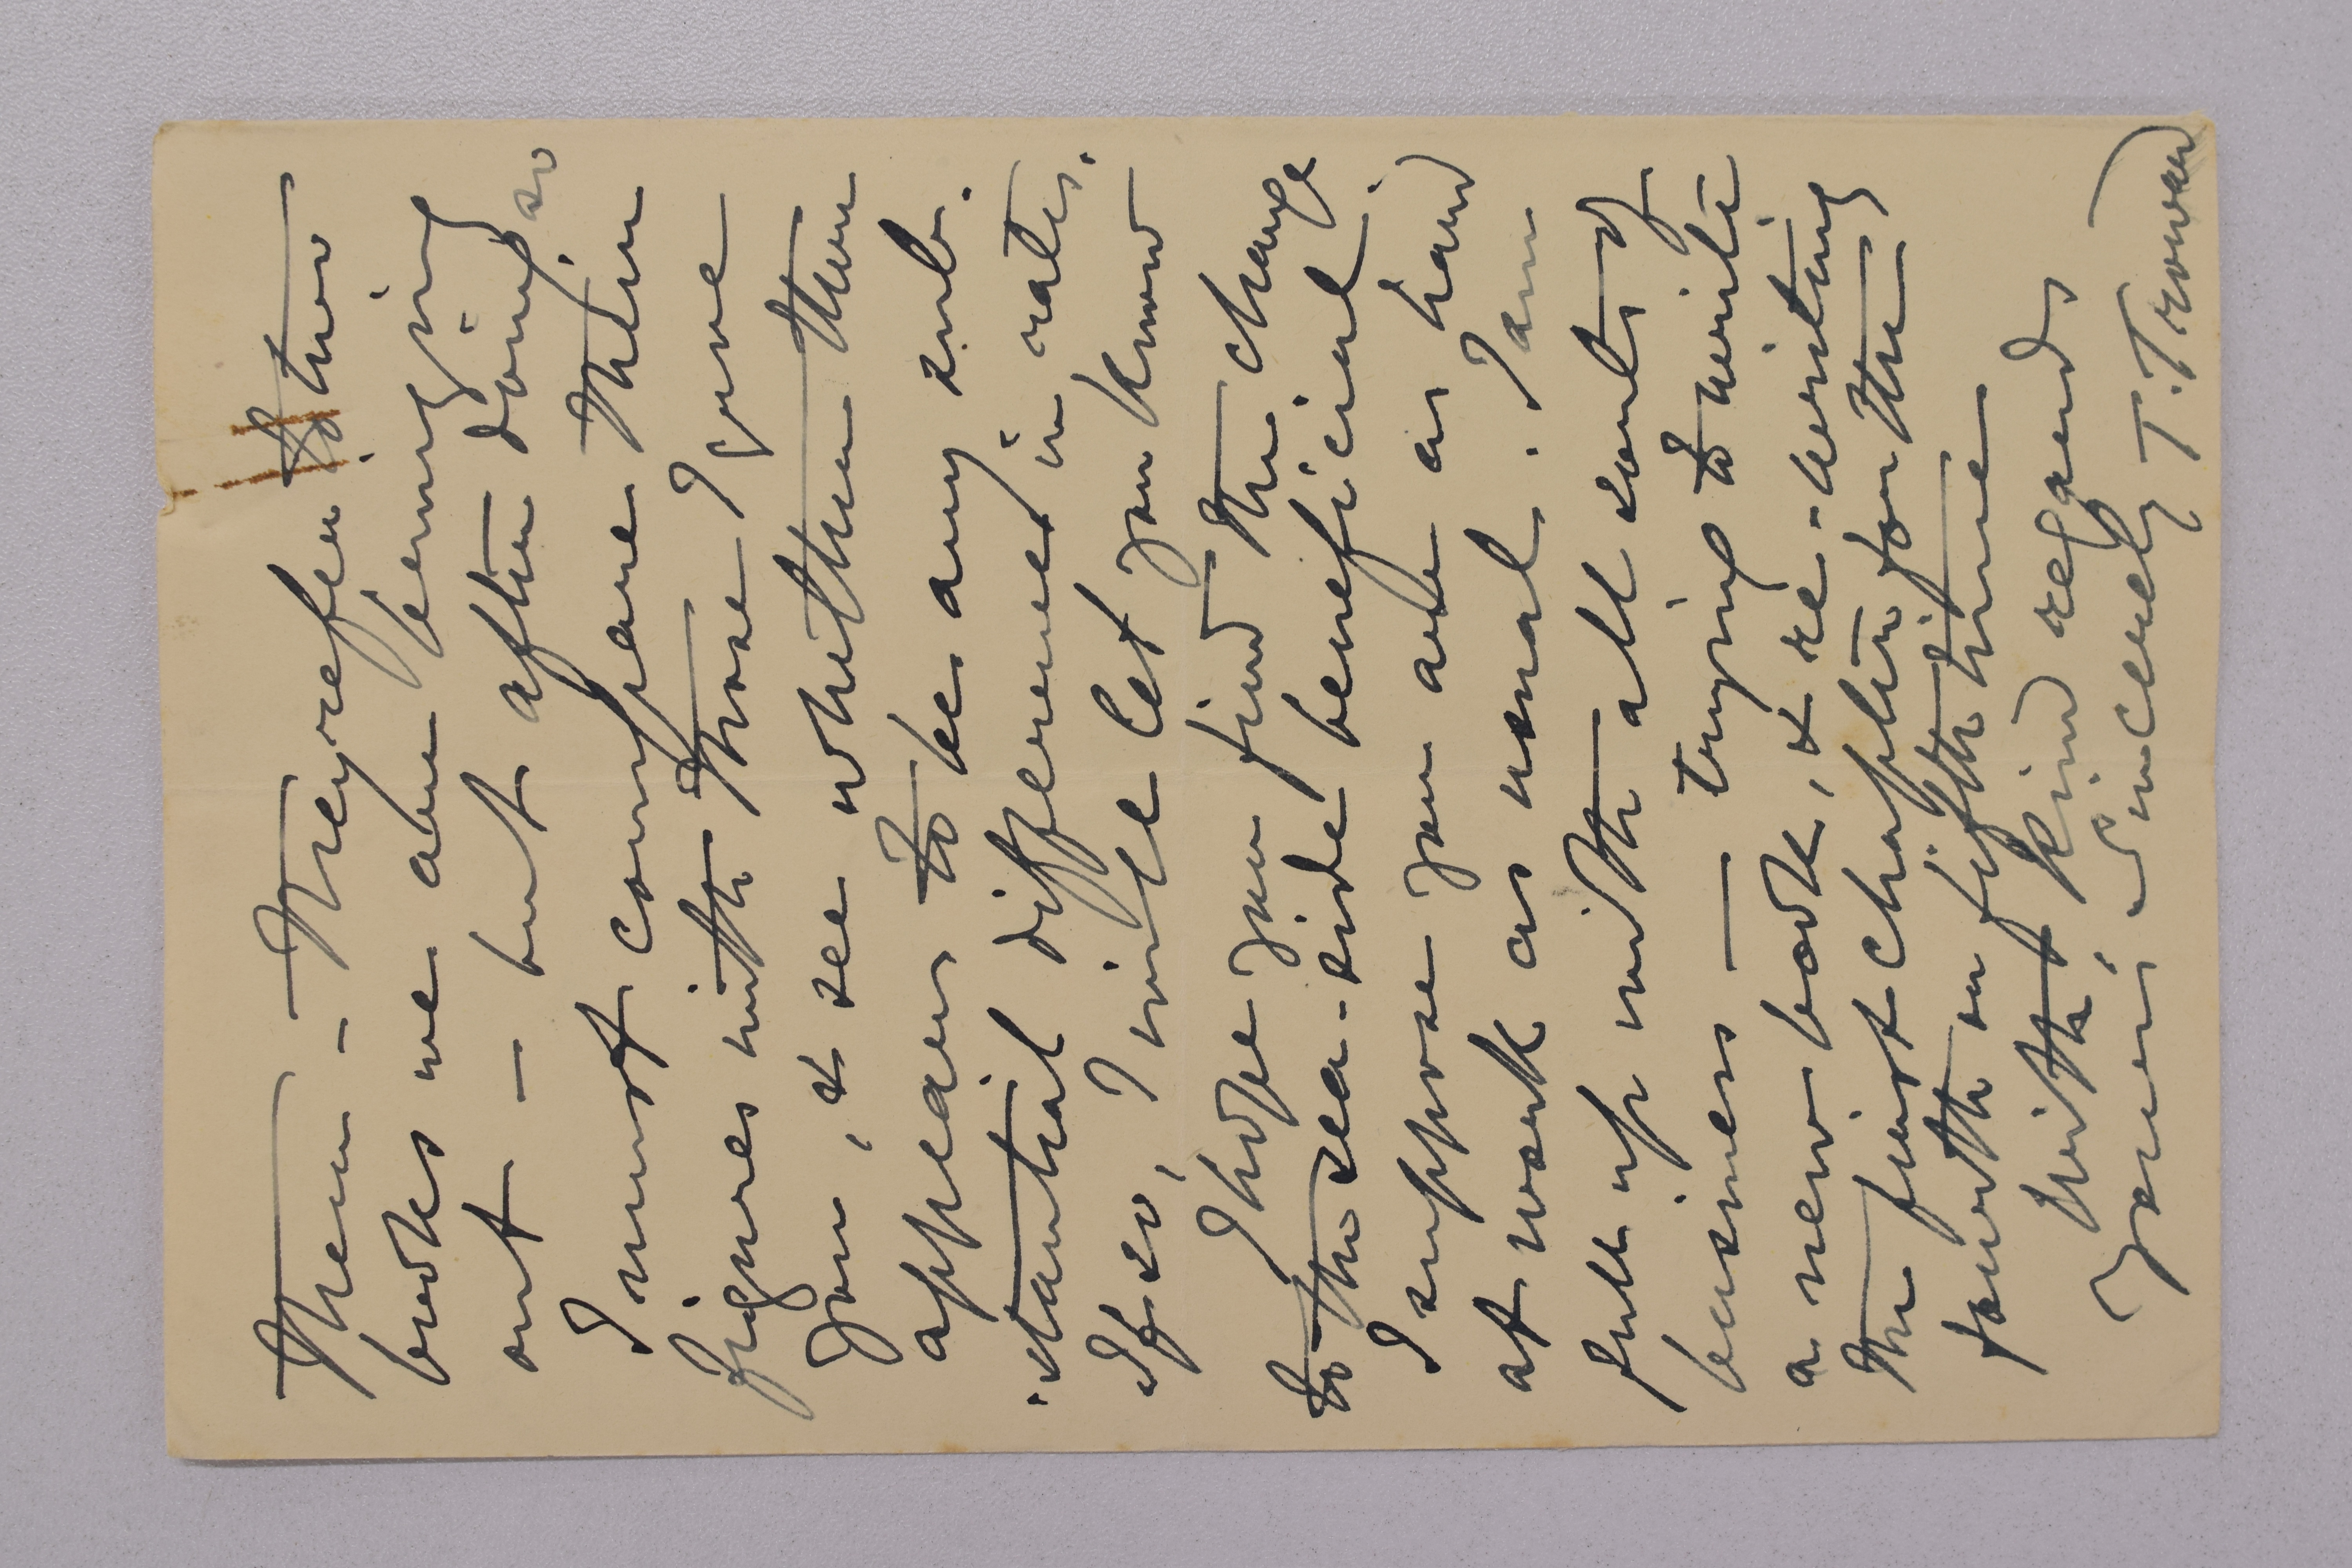 them – They refer to two
books we are bringing
out – but after doing so
I must compare their
figures with those I gave
you, & see whether there
appears to be any sub-
stantial difference in rates.
If so, I will let you know
I hope you find the change
to the sea-side beneficial.
I suppose you are as hard
at work as usual. I am
full up with all sorts of
business — trying to write
a new book, & re-writing
the first chapter for the
fourth or fifth time
With kind regards
Yours sincerely T. Troward